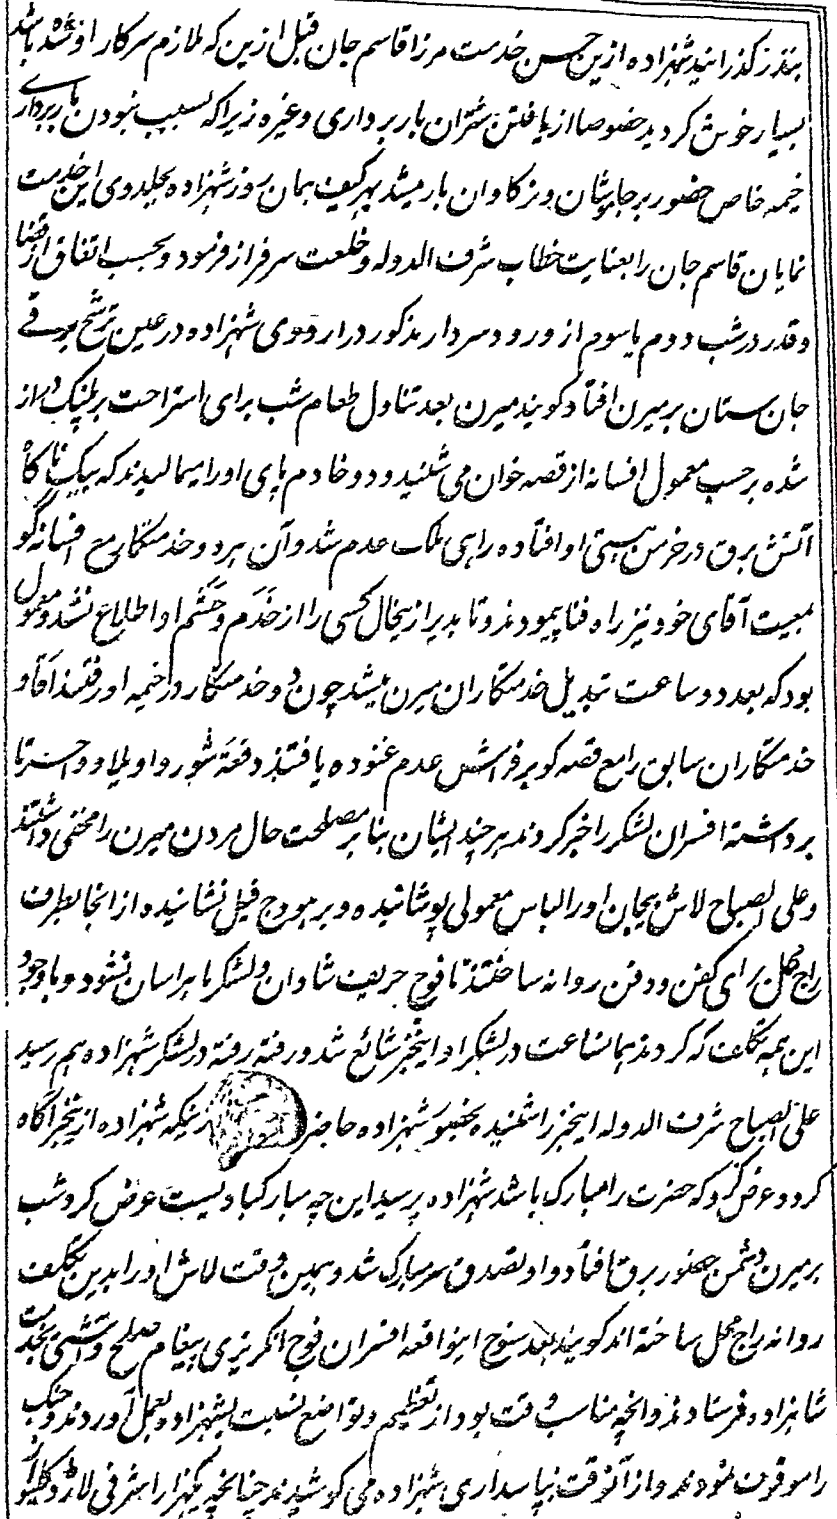 بنذر گذرانید شهزاده ازین حسن خدمت مرزا قاسم جان قبل ازین که ملازم سرکار او شده باشد
بسیار خوش گردید خصوصا از یافتن شتران باربرداری وغیره زیرا که بسبب نبودن باربرداری
خیمه خاص حضور بر چارپایان و نرگاوان بار میشد بهرکیف همان روز شهزاده بجلدوی این خدمت
نمایان قاسم جان را بعنایت خطاب شرف الدوله و خلعت سرفراز فرمود و بحسب اتفاق از قضا
و قدر در شب دوم یا سوم از ورود سردار مذکور در اردوی شهزاده در عین ترشح برقے
جان ستان بر میرن افتاد گویند میرن بعد تناول طعام شب برای استراحت بر پلنگ دراز
شده برحسب معمول افسانه از قصه خوان می شنید و دو خادم پای او را میمالیدند که بیک ناگاه
آتش برق در خرمن هستی او افتاده راهی ملک عدم شد و آن هر دو خدمتگار مع افسانه گو
بمعیت آقای خود نیز راه فنا پیمودند و تا بدیر ازینحال کسی را از خدم و حشم او اطلاع نشد و معمول
بود که بعد دو ساعت تبدیل خدمتگاران میرن میشد چون دو خدمتگار در خیمه او رفتند آقا و
خدمتگاران سابق را مع قصه گو بر فراش عدم غنوده یافتند دفعة شور و اویلا و واحسرتا
برداشته افسران لشکر را خبر کردند هر چند ایشان بنابر مصلحت حال مردن میرن را مخفی داشتند
و علی الصباح لاش بیجان او را لباس معمولی پوشانیده و بر هودج فیل نشانیده از انجا بطرف
راج محل برای کفن و دفن روانه ساختند تا فوج حریف شادان و لشکر ما هراسان نشود و باوجود
این همه تکلف که کردند همانساعت در لشکر او اینخبر شائع شد و رفته رفته در لشکر شهزاده هم رسید
علی الصباح شرف الدوله اینخبر را شنیده بحضور شهزاده حاضر زینکه شهزاده ازینخبر آگاه
گردد عرض کرد که حضرت را مبارک باشد شهزاده پرسید این چه مبارکباد یست عرض کرد شب
بر میرن دشمن حضور برق افتاد و او تصدق سر مبارک شد و همین وقت لاش او را بدین تکلف
روانه راج محل ساخته اند گویند بعد سنوح اینواقعه افسران فوج انگریزی پیغام صلح و آشتی بخدمت
شاهزاده فرستادند و انچه مناسب وقت بود از تعظیم و تواضع نسبت بشهزاده بعمل آوردند و جنگ
را موقوف نمودند و از آنوقت بپاسداری شهزاده می کوشیدند چنانچه یکهزار اشرفی لارڈ کلیو